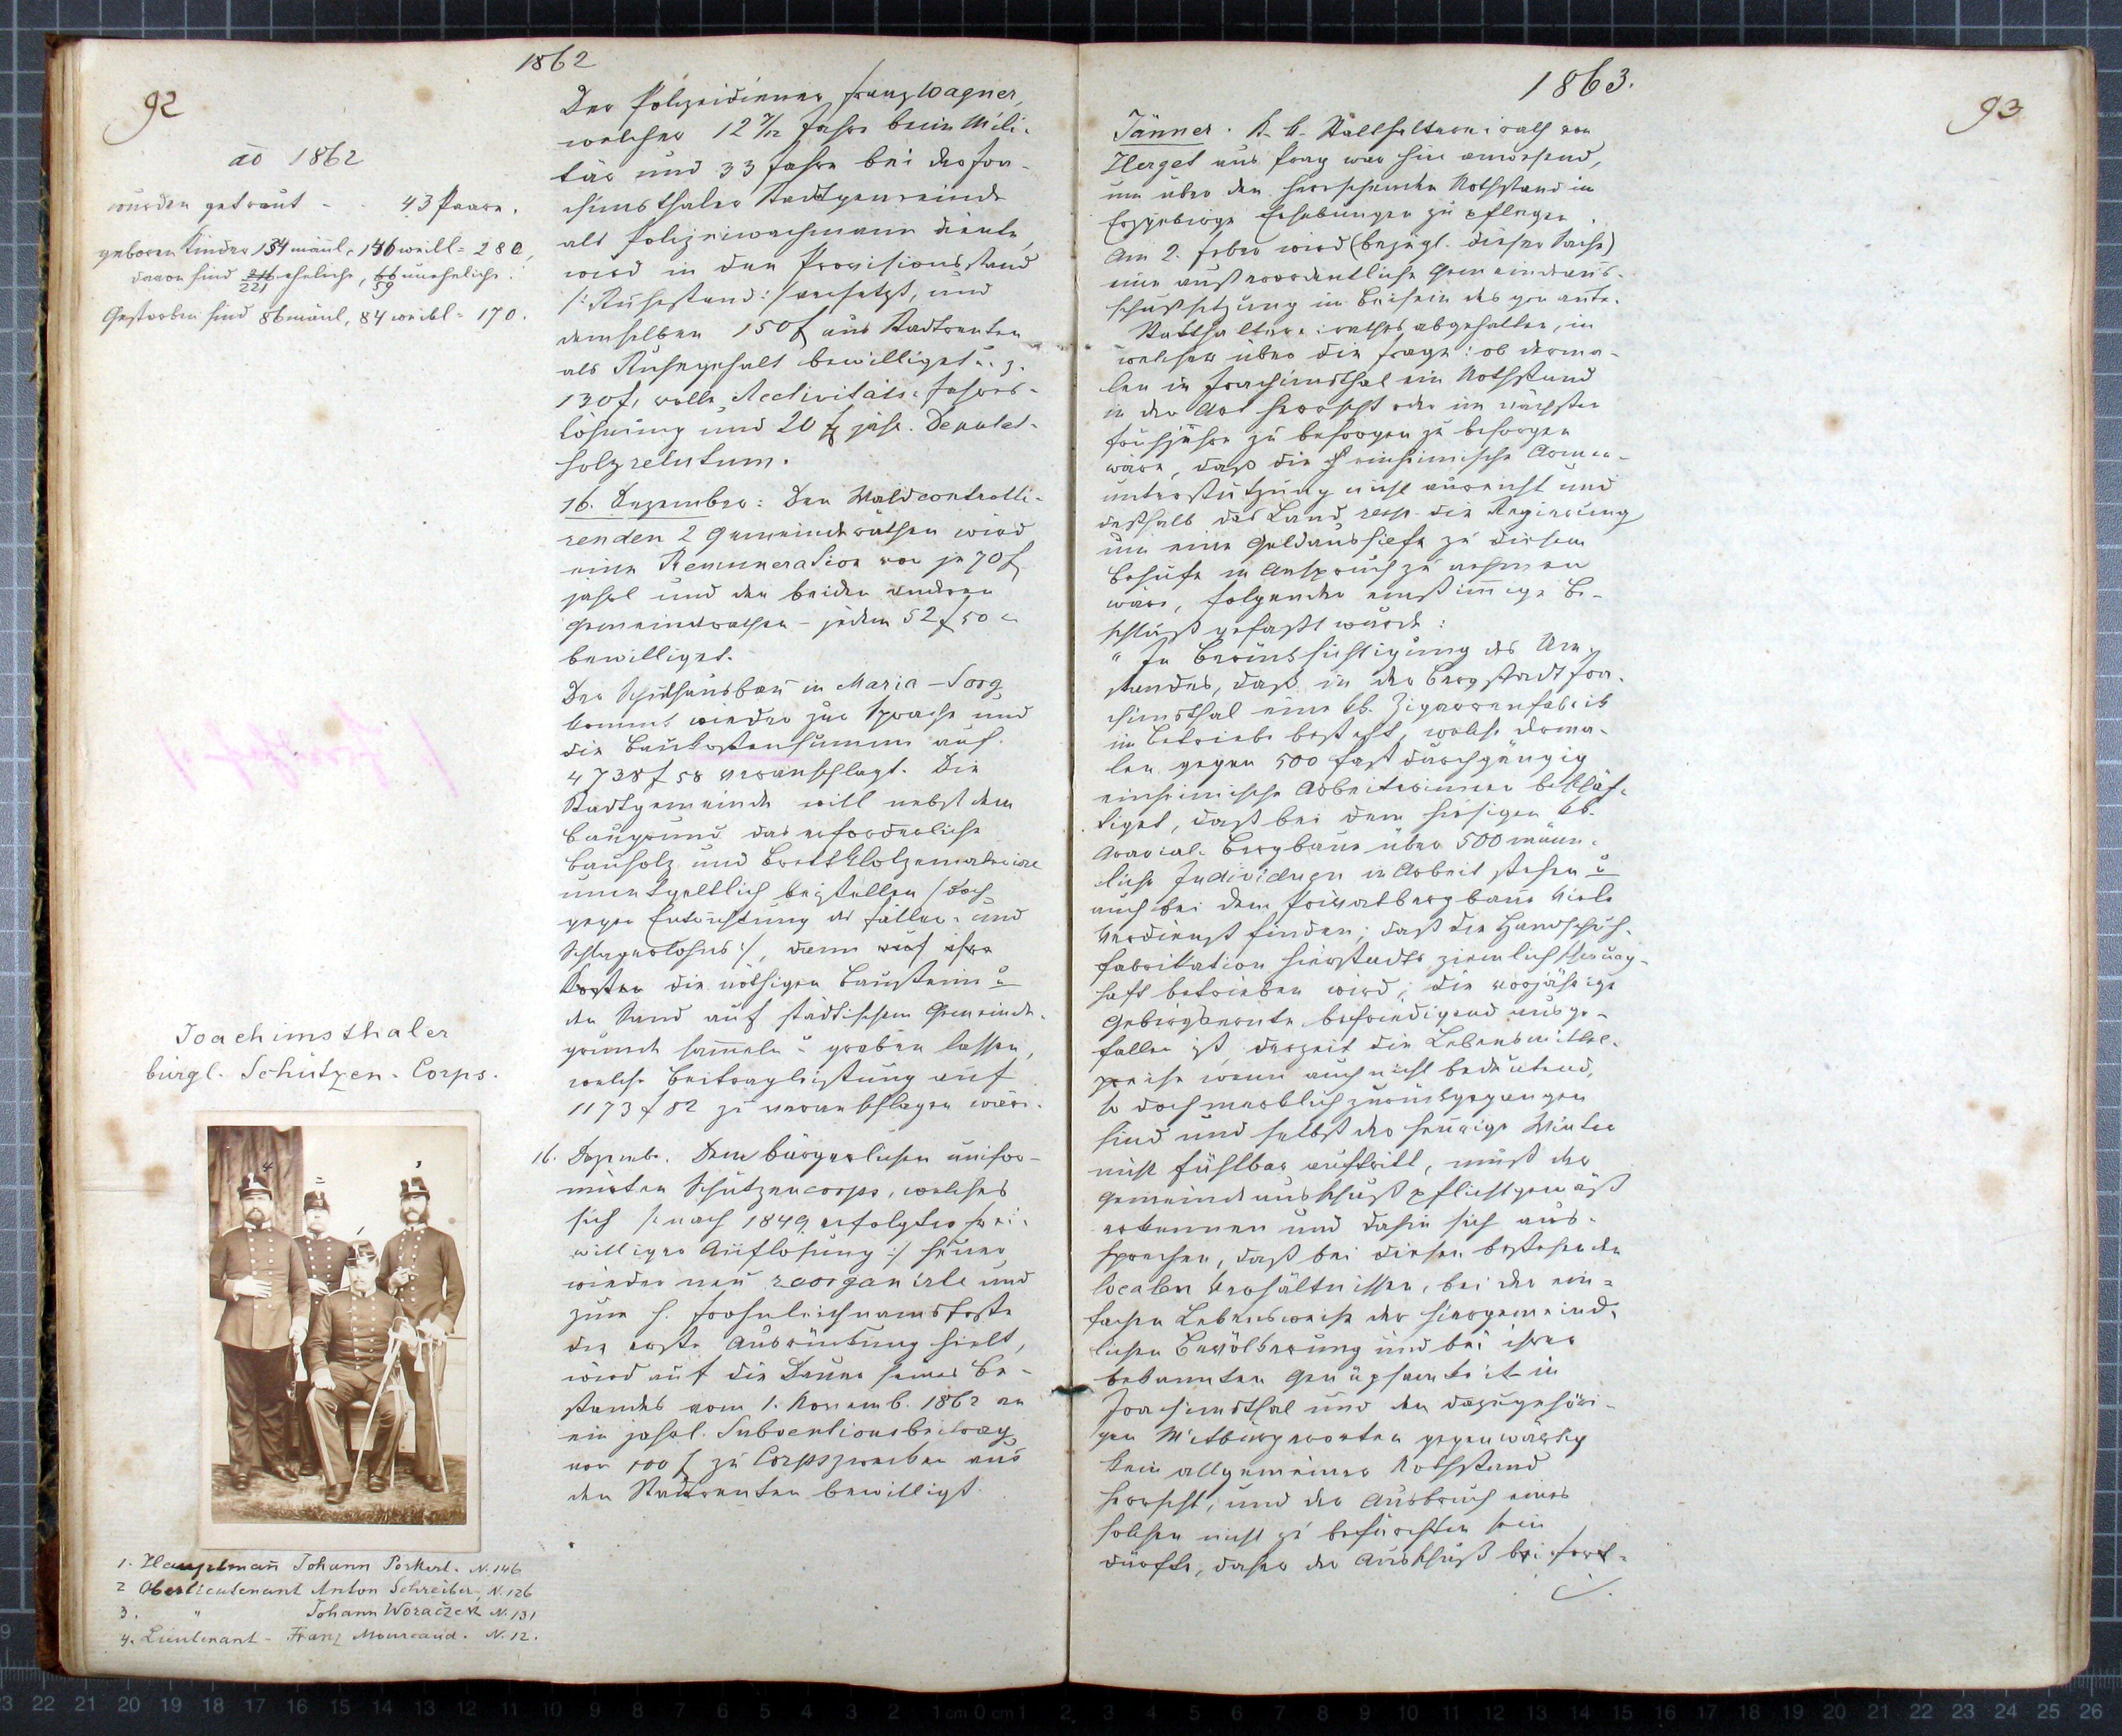 92
1862
ao 1862
wurden getraut - - 43 Paare.
geboren Kinder 134 männl. 146 weibl = 280,
davon sind 221 eheliche, 59 uneheliche.
Gestorben sind 86 männl, 84 weibl = 170.
Joachimsthaler
bürgl. Schützen-Corps.
4 2 3
1
1. Hauptmann Johann Porkert. N. 146
2 Oberlieutenant Anton Schreiber, N. 126
3. " Johann Woraczek N. 131
4. Lieutenant - Franz N. 12.
Der Polizeidiener Franz Wagner,
welcher 12 7/12 Jahre beim Mili-
tär und 33 Jahre bei der Joa-
chimsthaler Stadtgemeinde
als Polizeiwachmann diente,
wird in den Provisionsstand
/: Ruhestand :/ versetzt, und
demselben 150 f aus Stadtrenten
als Ruhegehalt bewilliget u. z.
130 f, volle Activitäts-Jahres-
löhnung und 20 f jähr. Deputat-
holzrelutum.
16. Dezember: Den Waldcontrolli-
renden 2 Gemeinderäthen wird
eine Remuneration von je 70 f
jährl und den beiden anderen
Gemeinderäthen - jedem 52 f 50 c
bewilliget.
Der Schulhausbau in Maria-Sorg
kommt wieder zur Sprache und
die Baukostensumme auf
4738 f 58 veranschlagt. Die
Stadtgemeinde will nebst dem
Baugrund das erforderliche
Bauholz und Brettklotzmateriale
unentgeltlich beistellen /: doch
gegen Entrichtung des Fäller- und
Schlagerlohnes :/, dann auf ihre
Kosten die nöthigen Bausteine u
den Sand auf städtischem Gemeinde-
grunde sam̄eln u graben lassen,
welche Beitragleistung auf
1173 f 82 zu veranschlagen wäre.
16. Dezemb. Dem bürgerlichen unifor-
mirten Schützencorps, welches
sich /: nach 1849 erfolgter frei-
williger Auflösung :/ heuer
wieder neu reorganirte und
zum h. Frohnleichnamsfeste
die erste Ausrückung hielt,
wird auf die Dauer seines Be-
standes vom 1. Novemb. 1862 an
ein jährl. Subventionsbeitrag
von 100 f zu Corpszwecken aus
den Stadtrenten bewilligt.
1863.
93
Jänner. K. k. Statthalterei rath von
Herget aus Prag war hier anwesend,
um über den herrschenden Nothstand im
Erzgebirge Erhebungen zu pflegen.
Am 2. Feber wird (bezügl. dieser Sache)
eine außerordentliche Gemeindeaus-
schußsitzung im Beisein des genante.
Statthalterei rathes abgehalten, in
welcher über die Frage: ob derma-
len in Joachimsthal ein Nothstand
in der Art herrscht oder im nächsten
Frühjahre zu besorgen zu besorgen
wäre, daß die einheimische Armen-
unterstützung nicht ausreicht und
deßhalb das Land, resp. die Regierung
um eine Geldaushilfe zu diesem
Behufe in Anspruch zu nehmen
wäre, folgender einstim̄ige Be-
schluß gefaßt wurde:
"In Berücksichtigung des Um-
standes, daß in der Bergstadt Joa-
chimsthal eine kk. Zigarrenfabrik
im Betriebe besteht, welche derma-
len gegen 500 fast durchgängig
einheimische Arbeiterinnen beschäf-
tiget, daß bei dem hiesigen kk.
Ararial-Bergbaue über 500 männ-
liche Individuen in Arbeit stehen u
auch bei dem Privatbergbaue Viele
Verdienst finden; daß die Handschuh-
fabrikation hierstadts ziemlich schwung-
haft betrieben wird; die vorjährige
Gebirgsernte befriedigend ausge-
fallen ist, derzeit die Lebensmittel-
preise wenn auch nicht bedeutend,
so doch merklich zurückgegangen
sind und selbst der heurige Winter
nicht fühlbar auftritt, muß der
Gemeindeausschuß pflichtgemäß
erkennen und dahin sich aus-
sprechen, daß bei diesen bestehenden
localen Verhältnissen, bei der ein-
fachen Lebensweise der hiergemeind-
lichen Bevölkerung und bei ihrer
bekannten Genügsamkeit in
Joachimsthal und den dazugehöri-
gen Mitbürgerorten gegenwärtig
kein allgemeiner Nothstand
herrscht, und der Ausbruch eines
solchen nicht zu befürchten sein
dürfte, daher der Ausschuß bei fort-
./.